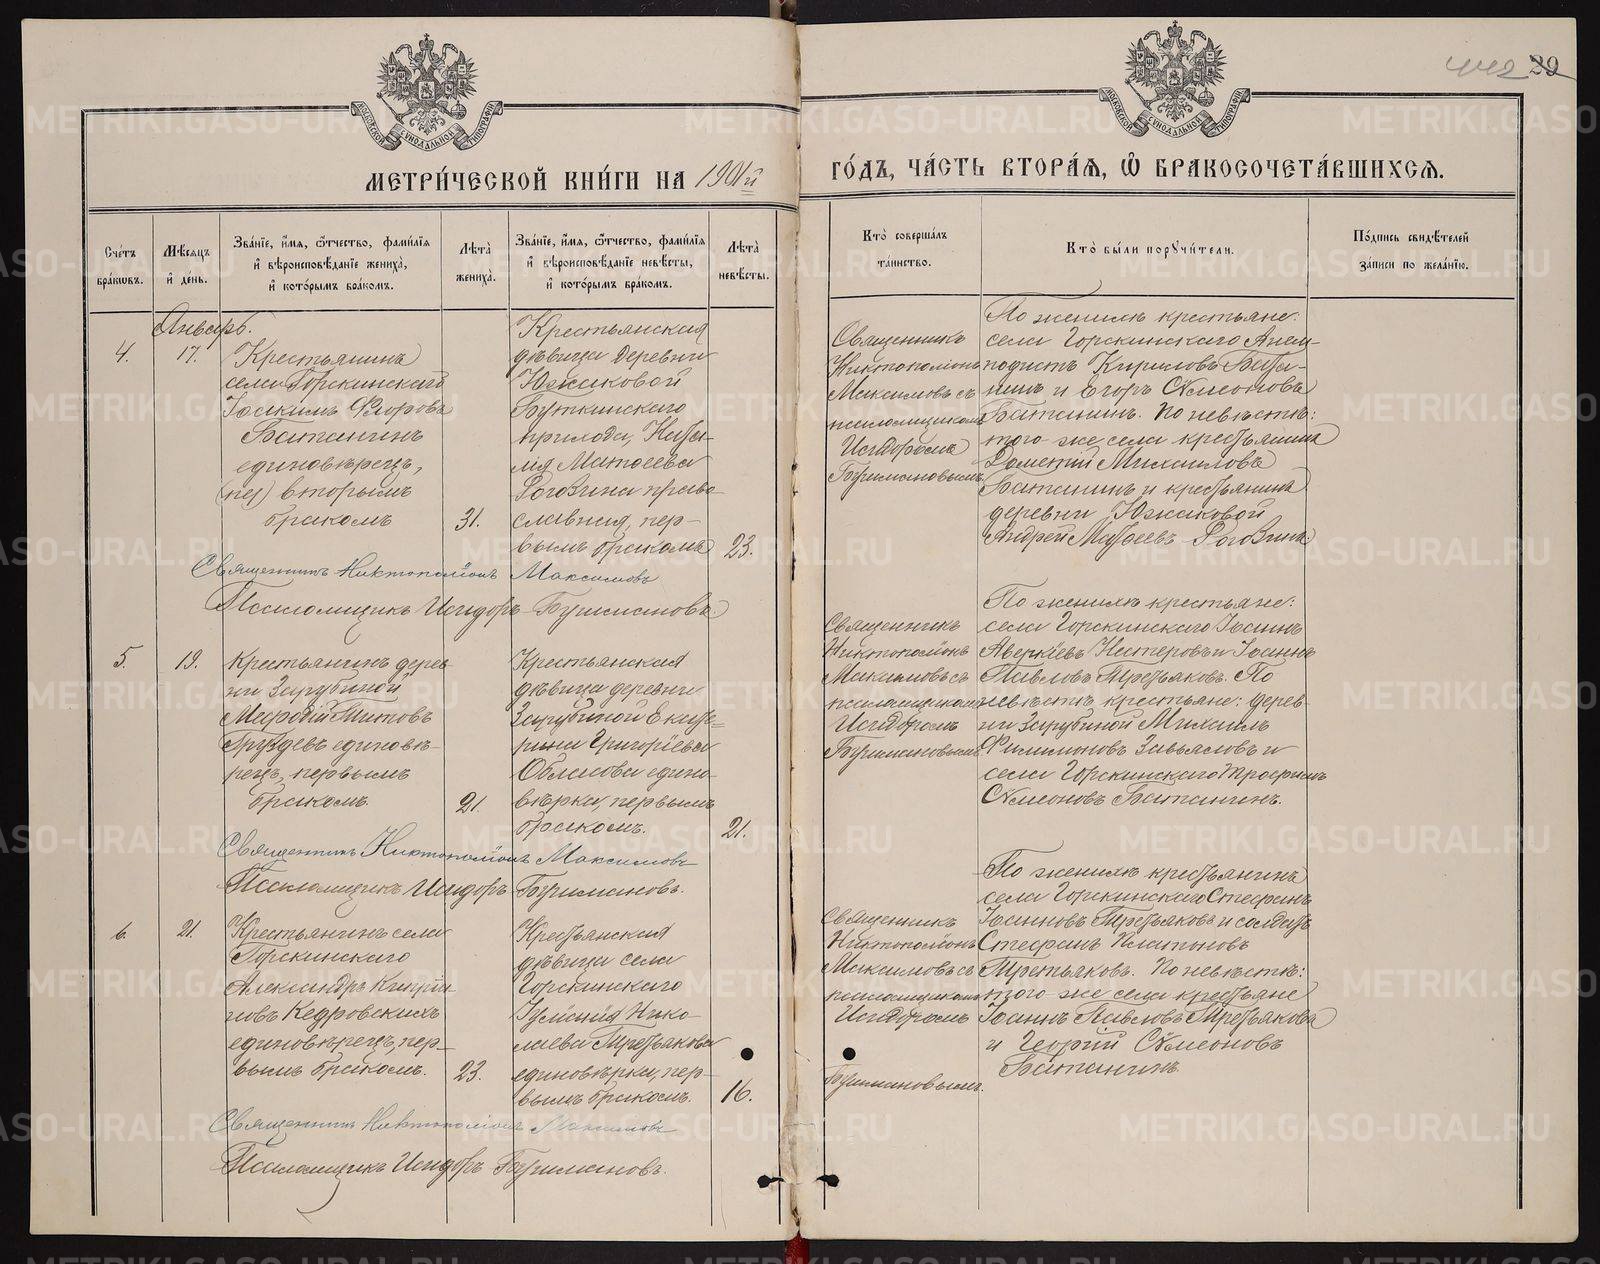 МОСКОВСКОЙ СѴНОДАЛЬНОЙ ТИПОГРАФІИ
МОСКОВСКОЙ СѴНОДАЛЬНОЙ ТИПОГРАФІИ
39
МЕТРИ́ЧЕСКОЙ КНИ́ГИ НА 1901й
ГО́ДЪ, ЧА́СТЬ ВТОРА́Я, Ѽ БРАКОСОЧЕТА́ВШИХСЯ.
Сче́тъ бра́кѡвъ.
Мѣ́сяцъ и҆ де́нь.
Зва́нїе, и҆́мя, ѻ҆́тчество, фами́лїя и҆ вѣроисповѣ́данїе жениха̀, и҆ кото́рымъ бра́комъ.
Лѣта̀ жениха̀.
Зва́нїе, и҆́мя, ѻ҆́тчество, фами́лїя и҆ вѣроисповѣ́данїе невѣ́сты, и҆ кото́рымъ бра́комъ.
Лѣта̀ невѣ́сты.
Кто̀ соверша́лъ та́инство.
Кто̀ бы́ли порꙋчи́тели.
По́дпись свидѣ́телей за́писи по жела́нїю.
Январь.
4.
17.
Крестьянинъ
села Горскинскаго
Іоакимъ Флоровъ
Батанинъ
единовѣрецъ,
вторымъ
бракомъ
31.
Крестьянская
дѣвица деревни
Южаковой
Буткинскаго
прихода, Ната-
лія Матѳеева
Роговина право-
славная, пер-
вымъ бракомъ
23.
Священникъ
Никтополіонъ
Максимовъ съ
псаломщикомъ
Исидоромъ
Буримановымъ
По женихѣ крестьяне:
села Горскинскаго Анем-
подистъ Кириловъ Бата-
нинъ и Егоръ Сѷмеоновъ
Батанинъ. По невѣстѣ:
того-же села крестьянинъ
Дометій Михаиловъ
Батанинъ и крестьянинъ
деревни Южаковой
Андрей Матѳеевъ Роговинъ.
Священникъ Никтополіонъ Максимовъ
Псаломщикъ Исидоръ Буримановъ.
5.
19.
Крестьянинъ дерев-
ни Зарубиной
Меѳодій Титовъ
Груздевъ единовѣ-
рецъ, первымъ
бракомъ.
21.
Крестьянская
дѣвица деревни
Зарубиной Екате-
рина Григоріева
Обласова едино-
вѣрка, первымъ
бракомъ.
21.
Священникъ
Никтополіонъ
Максимовъ съ
псаломщикомъ
Исидоромъ
Буримановымъ
По женихѣ крестьяне:
села Горскинскаго Іоаннъ
Аверкіевъ Нестеровъ и Іоаннъ
Павловъ Третьяковъ. По
невѣстѣ крестьяне: дерев-
ни Зарубиной Михаилъ
Филимоновъ Завьяловъ и
села Горскинскаго Трофимъ
Сѷмеоновъ Батанинъ.
Священникъ Никтополіонъ Максимовъ
Псаломщикъ Исидоръ Буримановъ.
6.
21.
Крестьянинъ села
Горскинскаго
Александръ Кипріа-
новъ Кедровскихъ
единовѣрецъ, пер-
вымъ бракомъ.
23.
Крестьянская
дѣвица села
Горскинскаго
Іуліанія Нико-
лаева Третьякова
единовѣрка, пер-
вымъ бракомъ.
16.
Священникъ
Никтополіонъ
Максимовъ съ
псаломщикомъ
Исидоромъ
Буримановымъ.
По женихѣ крестьянинъ
села Горскинскаго Стефанъ
Іоанновъ Третьяковъ и солдатъ
Стефанъ Платоновъ
Третьяковъ. По невѣстѣ:
того-же села крестьяне
Іоаннъ Павловъ Третьяковъ
и Георгій Сѷмеоновъ
Батанинъ
Священникъ Никтополіонъ Максимовъ
Псаломщикъ Исидоръ Буримановъ.